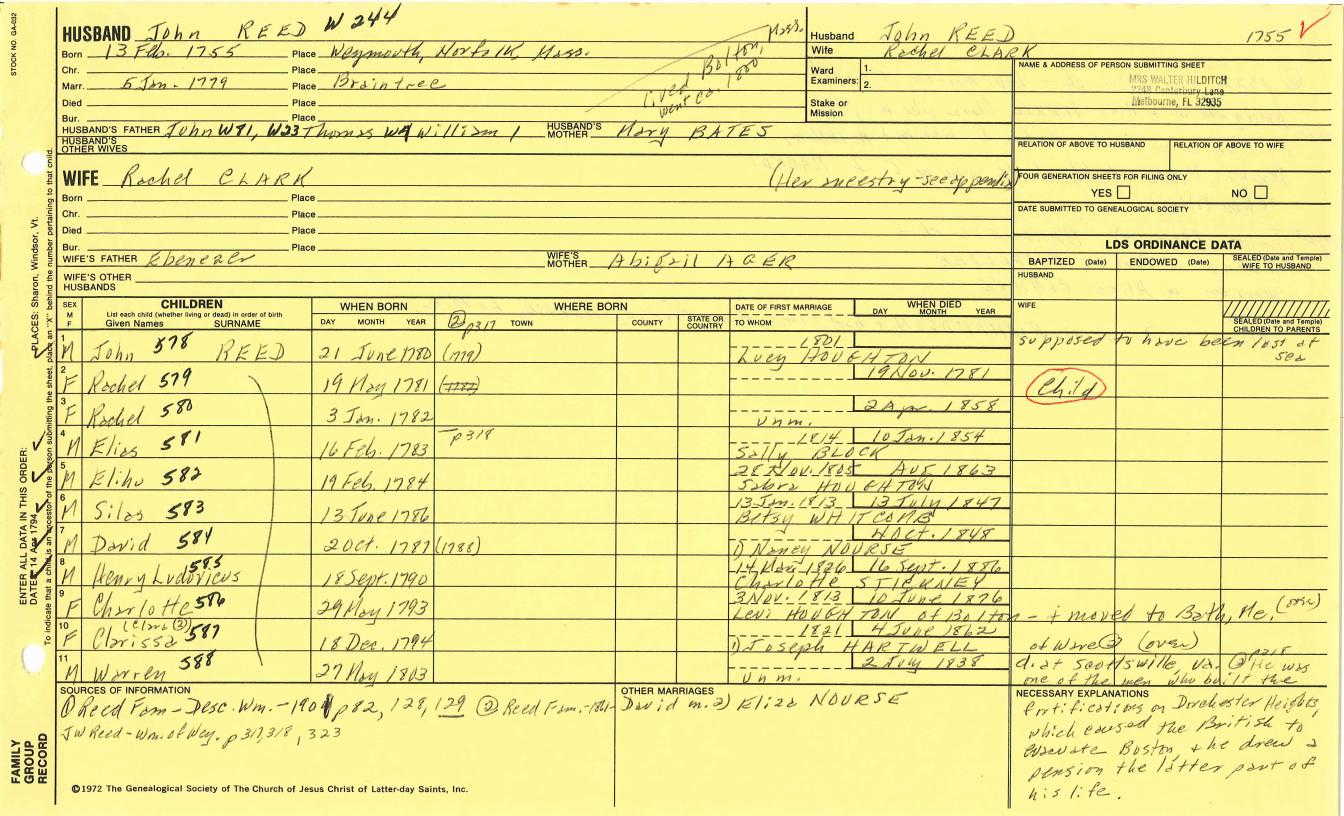 STOCK NO. GA-032
HUSBAND John REED W 244
Born 13 Feb. 1755 Place Weymouth, Norfolk, Mass.
Chr. Place
Marr. 5 Jan. 1779 Place Braintree
Died Place
Bur. Place
lived Bolton, Mass.
went ca. 1800
HUSBAND'S FATHER John W81, W23 Thomas W4 William 1 HUSBAND'S MOTHER Mary BATES
HUSBAND'S OTHER WIVES
Husband John REED 1755
Wife Rachel CLARK
Ward Examiners: 1.
2.
Stake or Mission
NAME & ADDRESS OF PERSON SUBMITTING SHEET
MRS WALTER HILDITCH
2248 Canterbury Lane
Melbourne, FL 32935
RELATION OF ABOVE TO HUSBAND RELATION OF ABOVE TO WIFE
FOUR GENERATION SHEETS FOR FILING ONLY
YES NO
DATE SUBMITTED TO GENEALOGICAL SOCIETY
WIFE Rachel CLARK (Her ancestry-see appendix)
Born Place
Chr. Place
Died Place
Bur. Place
WIFE'S FATHER Ebenezer WIFE'S MOTHER Abigail AGER
WIFE'S OTHER HUSBANDS
LDS ORDINANCE DATA
BAPTIZED (Date) ENDOWED (Date) SEALED (Date and Temple) WIFE TO HUSBAND
HUSBAND
WIFE
SEALED (Date and Temple) CHILDREN TO PARENTS
SEX M F CHILDREN WHEN BORN WHERE BORN DATE OF FIRST MARRIAGE WHEN DIED
List each child (whether living or dead) in order of birth
Given Names SURNAME DAY MONTH YEAR ② p317 TOWN COUNTY STATE OR COUNTRY TO WHOM DAY MONTH YEAR
1 M John 578 REED 21 June 1780 (1779) 1801
Lucy HOUGHTON supposed to have been lost at sea
2 F Rachel 579 19 May 1781 (1782) 19 Nov. 1781 Child
3 F Rachel 580 3 Jan. 1782 2 Apr. 1858
unm.
4 M Elias 581 16 Feb. 1783 p318 1814 10 Jan. 1854
Sally BLOCK
5 M Elihu 582 19 Feb. 1784 28 Nov. 1805 Aug 1863
Sabra HOUGHTON
6 M Silas 583 13 June 1786 13 Jan. 1813 13 July 1847
Betsy WHITCOMB
7 M David 584 2 Oct. 1787 (1788) 4 Oct. 1848
1) Nancy NOURSE
8 M Henry Ludovicus 585 18 Sept. 1790 14 May 1826 16 Sept. 1886
Charlotte STICKNEY
9 F Charlotte 586 29 May 1793 3 Nov. 1813 10 June 1876
Levi HOUGHTON of Bolton - + moved to Bath, Me. (over)
10 F Clarissa 587 (Clara ②) 18 Dec. 1794 1821 4 June 1862
1) Joseph HARTWELL of Ware ② (over)
11 M Warren 588 27 May 1803 2 July 1838
unm. d. at Scottsville, Va. ② p318 He was
one of the men who built the
SOURCES OF INFORMATION
① Reed Fam- Desc. Wm.-1901 p82, 128, 129 ② Reed Fam.-
JW Reed-Wm. of Wey. p317,318, 323
©1972 The Genealogical Society of The Church of Jesus Christ of Latter-day Saints, Inc.
OTHER MARRIAGES
David m.2) Eliza NOURSE
NECESSARY EXPLANATIONS
fortifications on Dorchester Heights,
which caused the British to
evacuate Boston, & he drew a
pension the latter part of
his life.
ENTER ALL DATA IN THIS ORDER:
DATES 14 Apr 1794
PLACES: Sharon, Windsor, Vt.
To indicate that a child is an ancestor of the person submitting the sheet, place an "X" behind the number pertaining to that child.
FAMILY
GROUP
RECORD